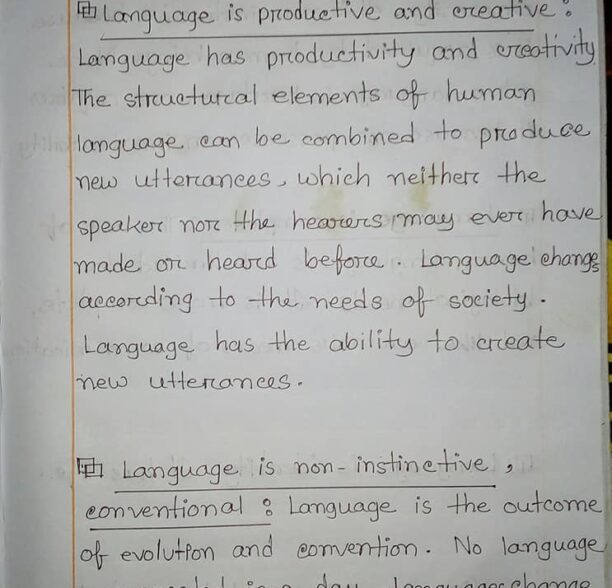 Language is productive and creative :
Language has productivity and creativity
The structural elements of human
language can be combined to produce
new utterances, which neither the
speaker nor the hearers may ever have
made or heard before. Language change
according to the needs of society.
Language has the ability to create
new utterances.
Language is non-instinctive,
conventional : Language is the outcome
of evolution and convention. No language
in a day. Languages change